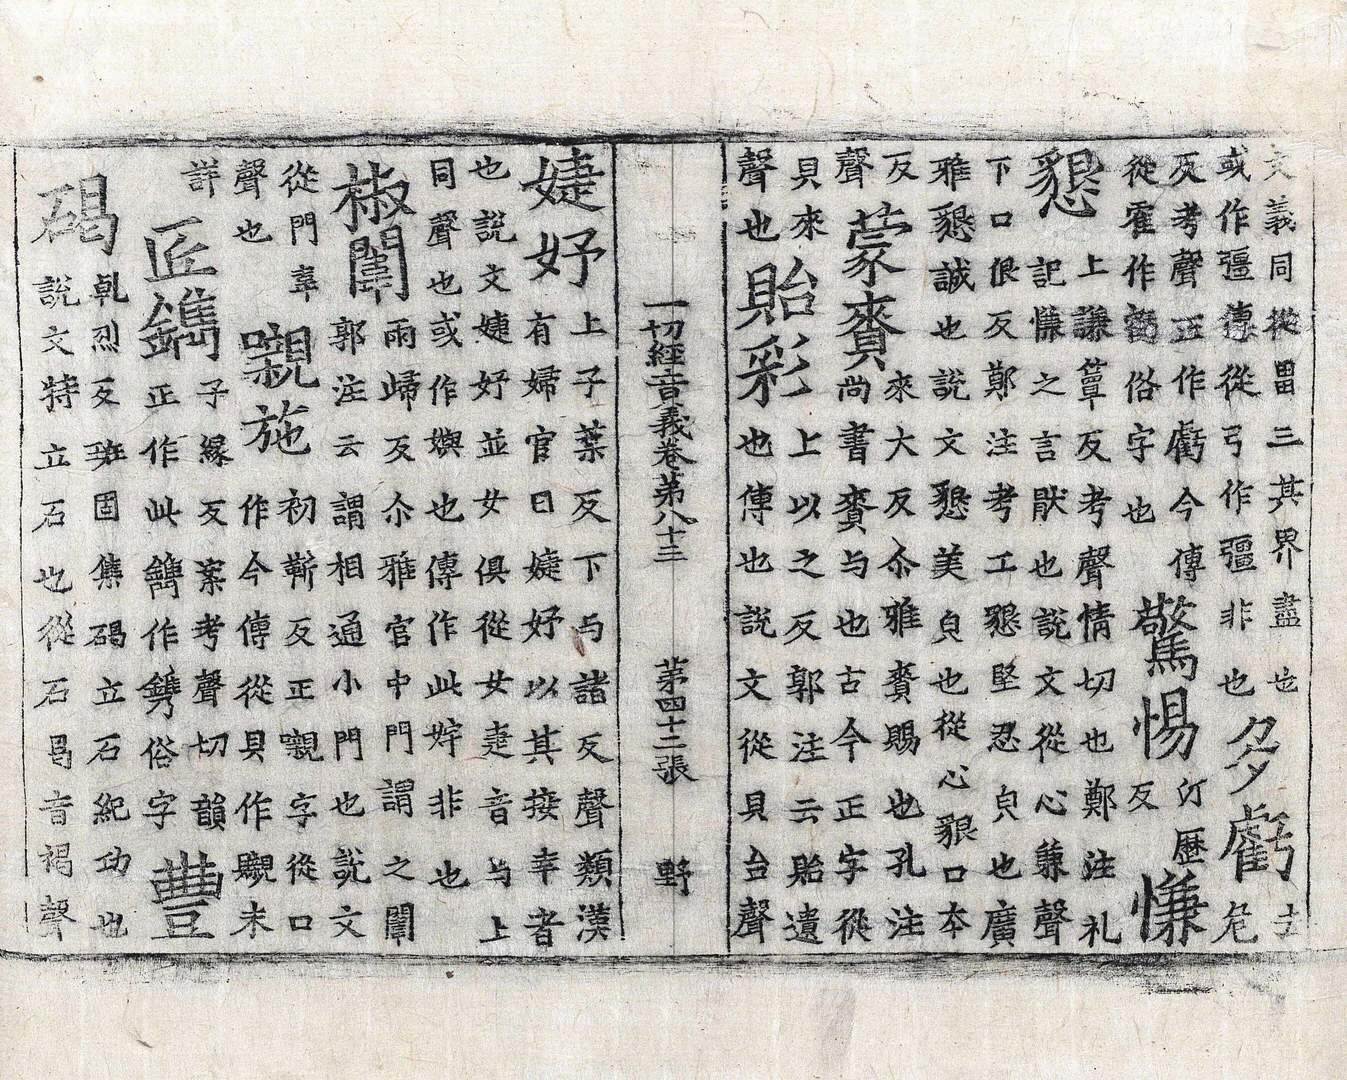 文義同從畕三其界盡也
或作疆傳從弓作壃非也
多虧
去危
反考聲正作虧今傳
從霍作䖇俗字也
驚惕
汀歷
反
慊
懇
上謙簟反考聲情切也鄭注礼
記慊之言猒也說文從心兼聲
下口佷反鄭注考工懇堅忍皃也廣
雅懇誠也說文懇美皃也從心貇口本
反
聲
蒙賚
來大反尒雅賚賜也孔注
尚書賚与也古今正字從
貝來
聲也
貽彩
上以之反郭注云貽遺
也傳也說文從貝台聲
一切經音義卷第八十三 第四十二張 野
婕妤
上子葉反下与諸反聲類漢
有婦官曰婕妤以其接幸者
也說文婕妤並女俱從女疌音与上
同聲也或作㜰也傳作此㛄非也
椒闈
雨歸反尒雅官中門謂之闈
郭注云謂相通小門也說文
從門韋
聲也
嚫施
初靳反正嚫字從口
作今傳從貝作䞋未
詳
匠鐫
子緣反案考聲切韻
正作此鐫作鎸俗字
豐
碣
乹烈反班固集碣立石紀功也
說文特立石也從石曷音褐聲